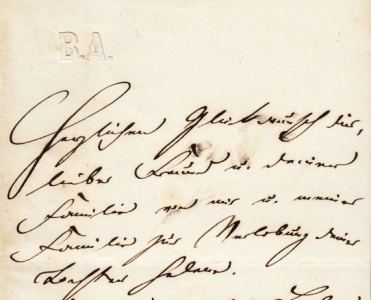 B.A.
Herzlichen Glückwunsch dir,
lieber Freund u. deiner
Familie von mir u. meiner
Familie zur Verlobung deiner
Tochter Helene.